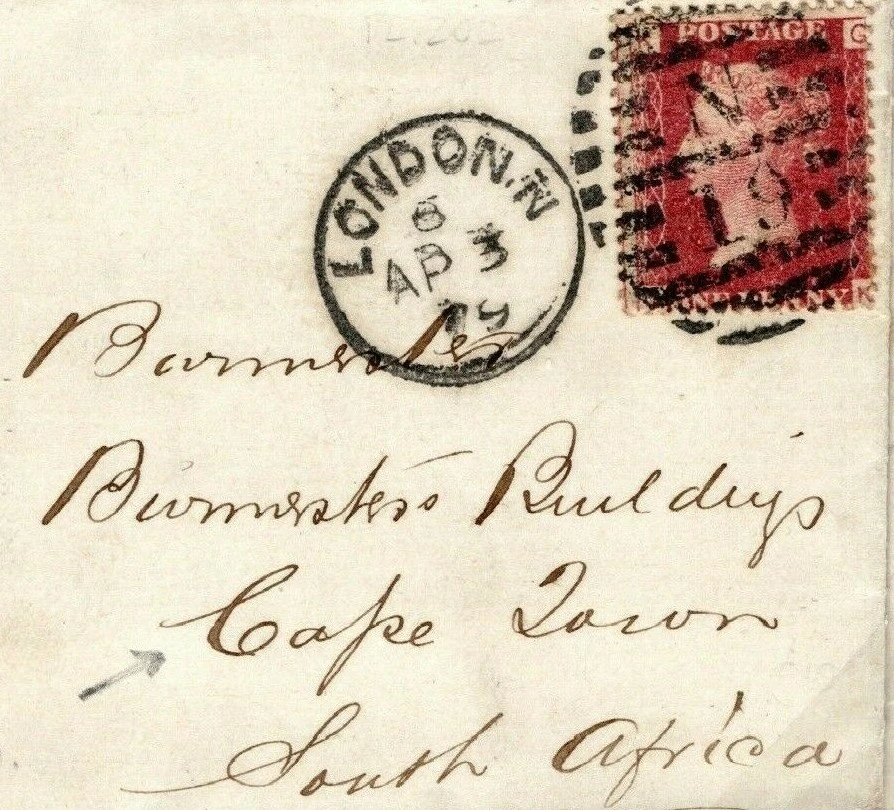 POSTAGE
G
N
19
ONE PENNY
K
LONDON.N
8
AP 3
79
Burmester
Burmester's Buildings
Cape Town
South Africa